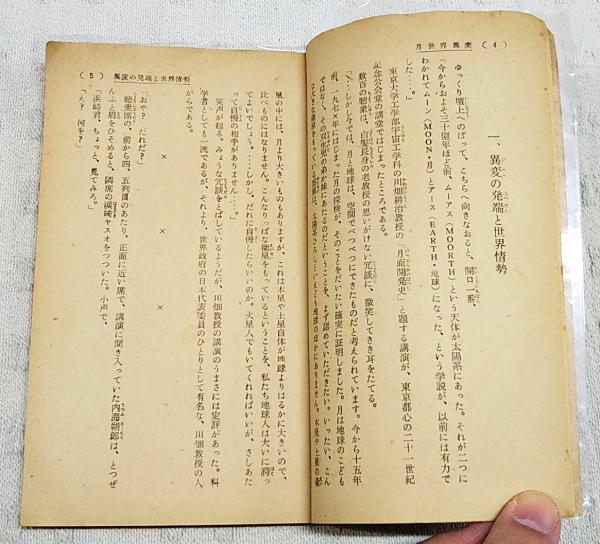 月世界異変 （4）
一、異変の発端と世界情勢
ゆっくり壇上へのぼって、こちらへ向きなおると、開口一番、
「今からおよそ三十億年ほど前、ムーアス（MOORTH）という天体が太陽系にあった。それが二つに
わかれてムーン（MOON・月）とアース（EARTH・地球）になった、という学説が、以前には有力で
した……」
東京大学工学部宇宙工学科の川畑耕治教授の「月面開発史」と題する講演が、東京都心の二十一世紀
記念公会堂の講堂ではじまったところである。
数百の聴衆は、白髪長身の老教授の思いがけない冗談に、微笑してきき耳をたてる。
「……しかし今では、月と地球は、空間でべつべつにできたものだと考えられています。今から十五年
前、一九七×年にはじまった月の探検が、そのことをだいたい確実に証明しました。月は地球のこども
ではなく、その双生児の弟か妹にあたるのだということを、まず認めていただきたい。いったい、こん
な大きな衛星をもっている惑星は、太陽系ひろしといえども地球のほかにありません。木星や土星の衛
（5） 異変の発端と世界情勢
星の中には、月より大きいものもありますが、これは木星や土星自体が地球よりはるかに大きいので、
比べものにはなりません。こんなりっぱな衛星をもっているということを、私たち地球人は大いに誇っ
てよいでしょう。……しかし、だれに自慢したらいいのか。火星人でもいてくれればいいが、さしあた
って自慢の相手がありません……。」
笑声が起る。みょうな冗談をとばしているようだが、川畑教授の講演のうまさには定評があった。科
学者としても一流であるが、それより、世界政府の日本代表委員のひとりとして有名な、川畑教授の人
がらである。
×　×　×
「おや？　だれだ？」
聴衆席の、前から四、五列目のあたり、正面に近い席で、講演に聞き入っていた内海朔郎は、とつぜ
んふと眉をひそめると、隣席の浜崎ヤスオをつついた。小声で、
「浜崎君、ちょっと、見てみろ。」
「え？　何を？」